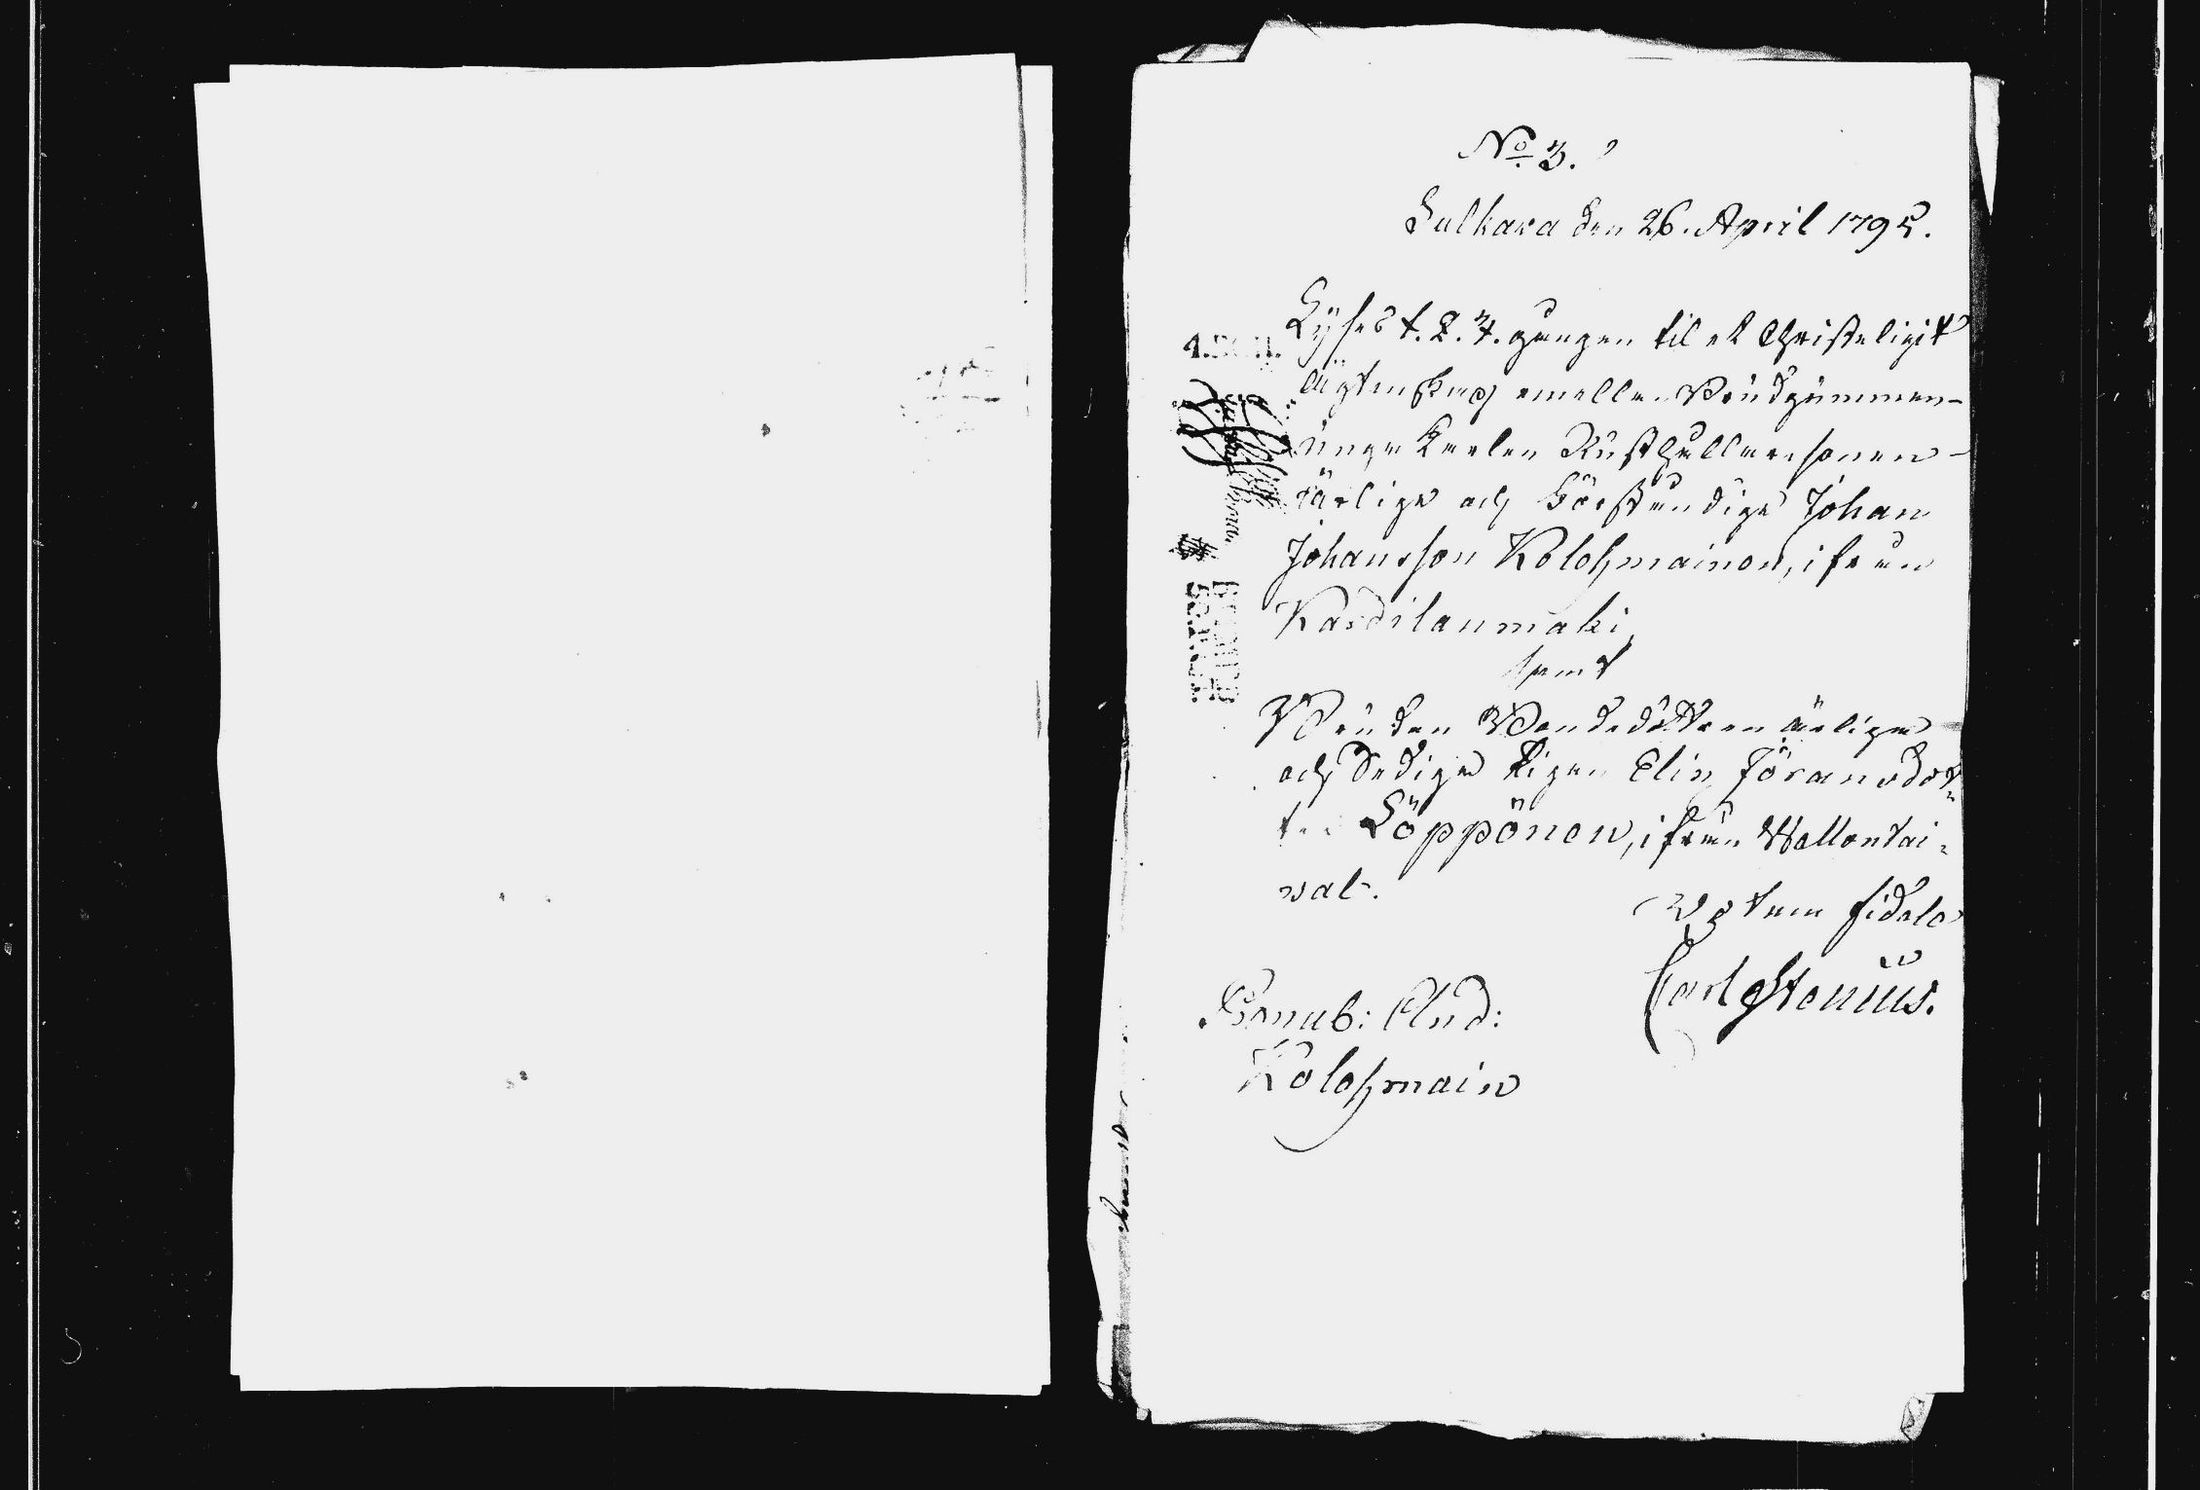 No 3.
Sulkava den 26. April 1795.
Lyses 1. 2. 3. gången til et Christeligit
ägtenskap emellan Brudgummen
unge Karlen Rusthållaresonen
ärlige och Förståndige Johan
Johansson Kolehmainen, ifrån
Kardilanmäki,
samt
Bruden Bondedottren ärliga
och Sediga Pigan Elin Jöransdot-
ter Löppönen, ifrån
val.
Carl Stenius.
Kolehmain